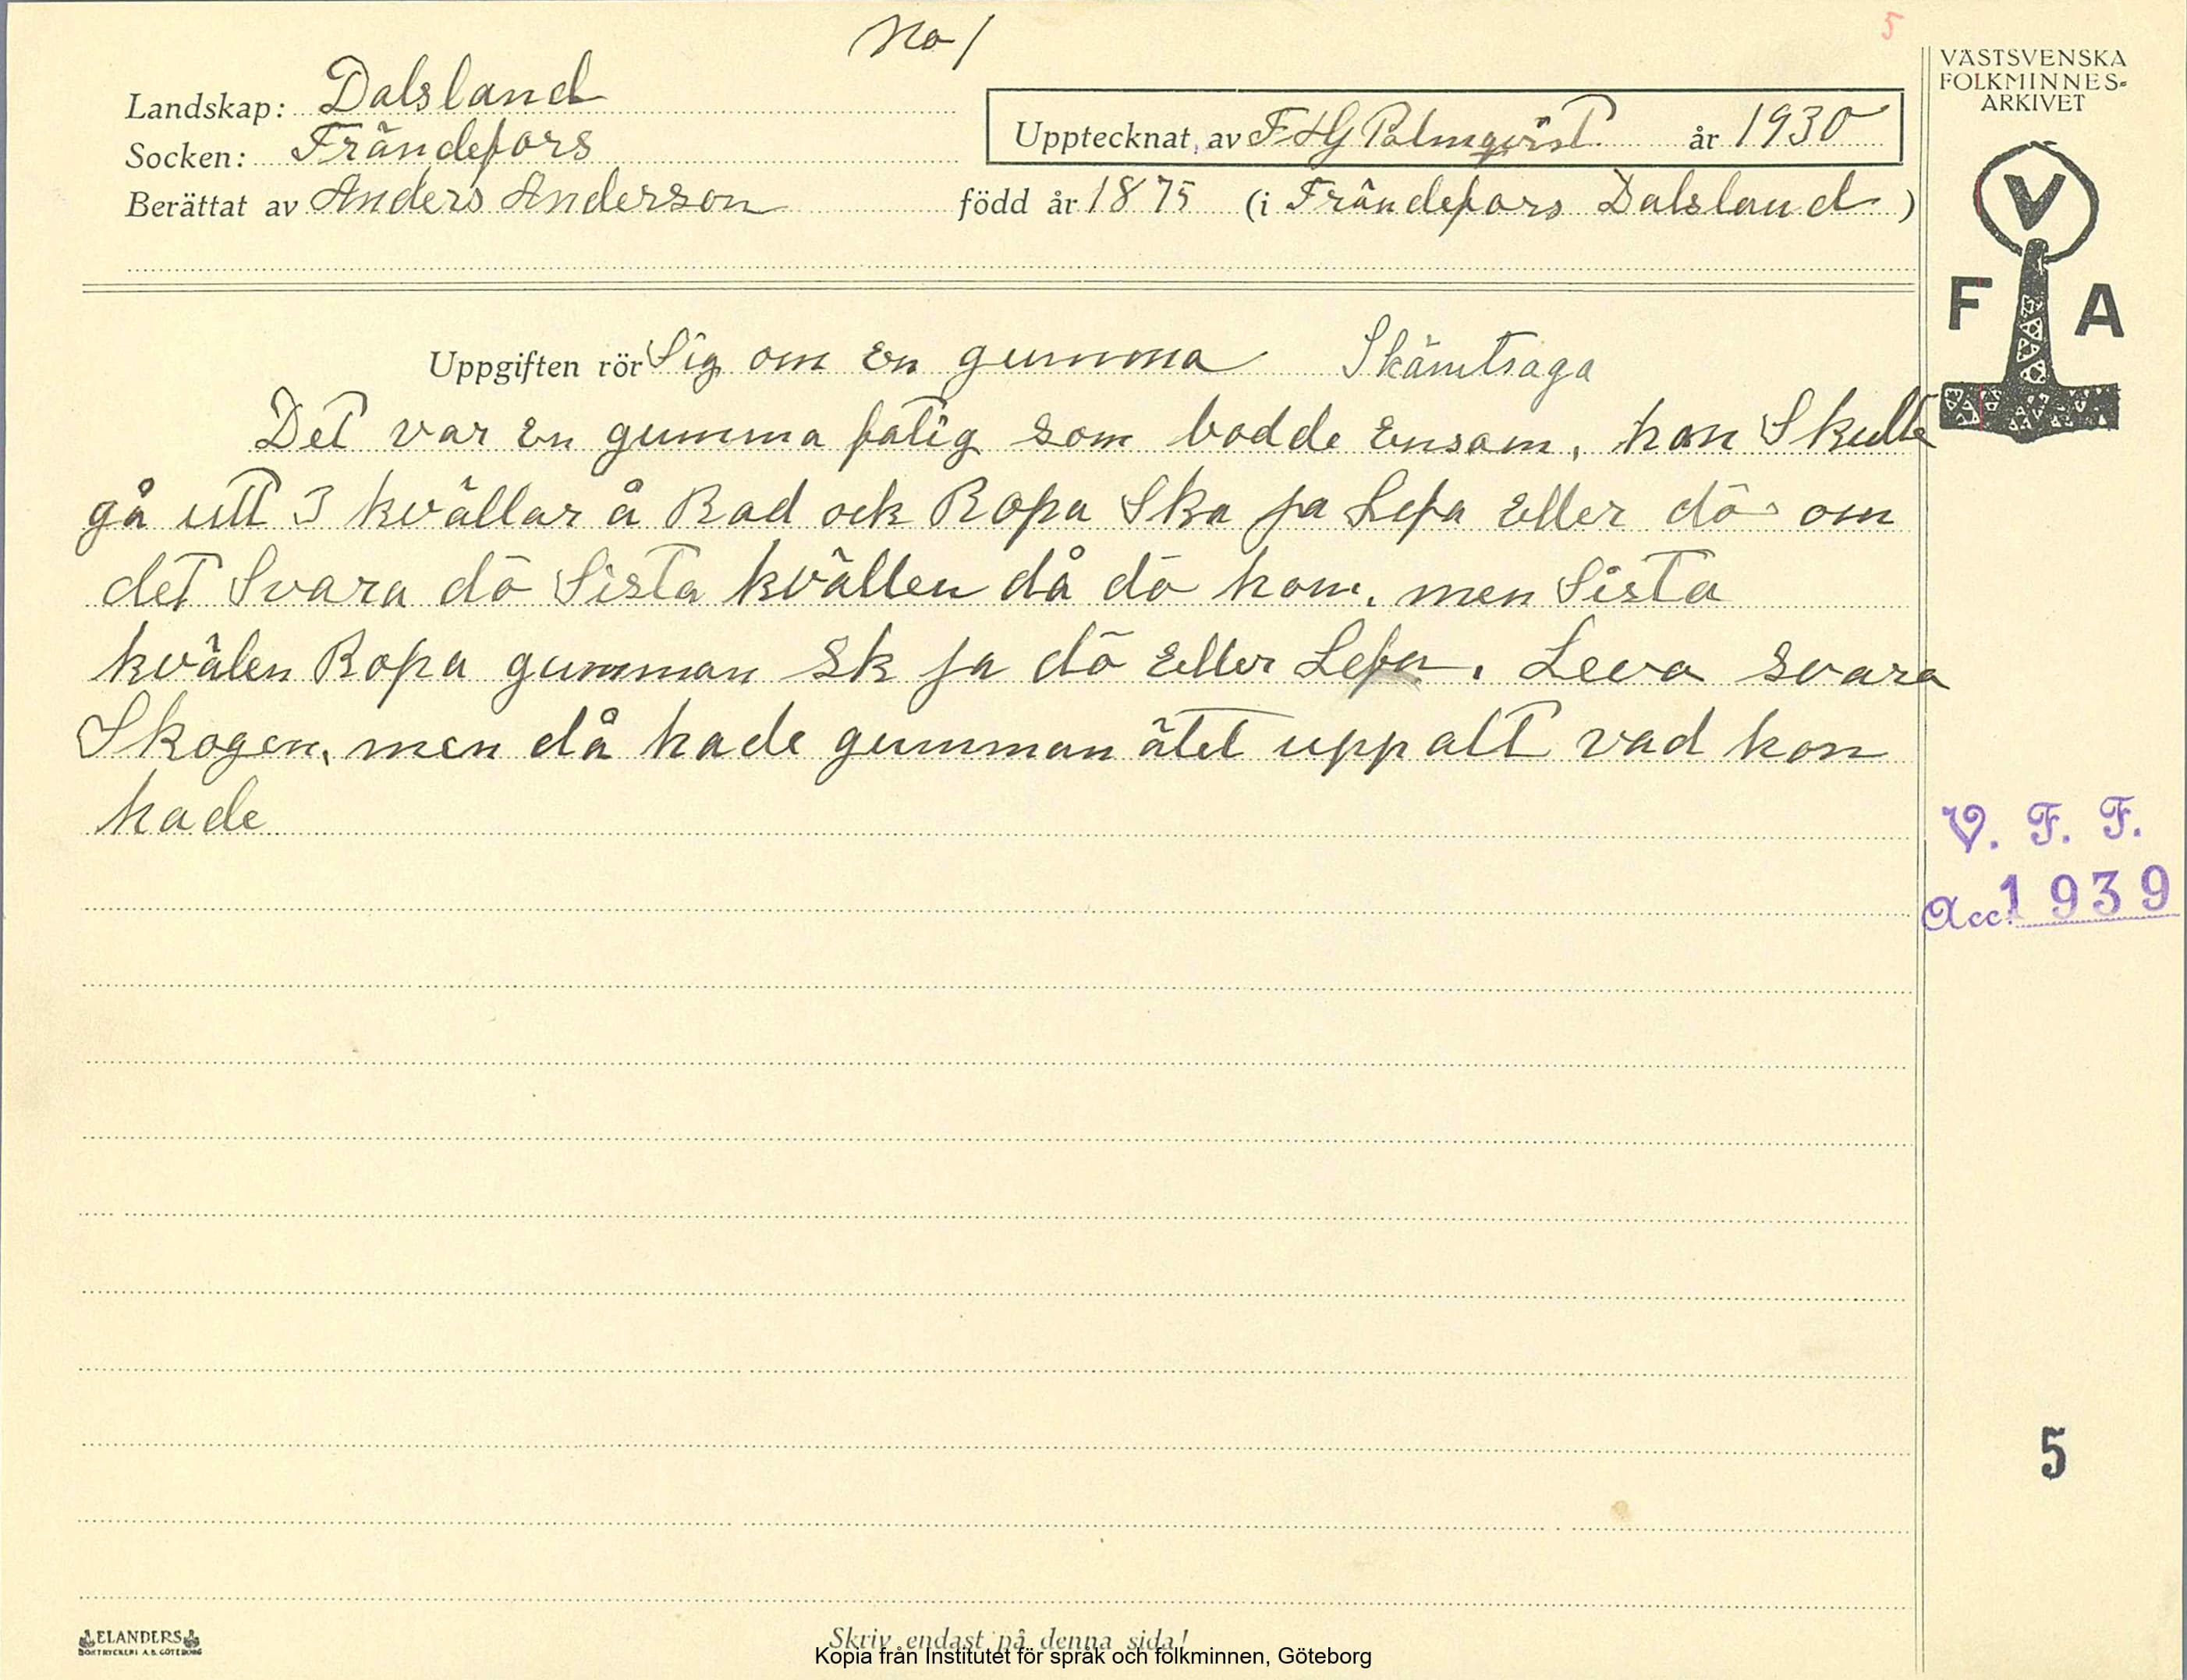 No 1
5
Landskap: Dalsland
Socken: Frändefors
Berättat av Anders Anderson
Upptecknat av F H G Palmqvist år 1930
född år 1875 (i Frändefors Dalsland)
VÄSTSVENSKA
FOLKMINNES-
ARKIVET
V
F A
Uppgiften rör Sig om En gumma Skämtsaga
Det var En gumma fatig som bodde Ensam, hon Skulle
gå utt 3 kvällar å Rad ock Ropa Ska ja Lefa Eller dö om
det Svara dö Sista kvällen då dö hon, men Sista
kvälen Ropa gumman Sk ja dö Eller Lefa. Leva svara
Skogen, men då hade gumman ätet upp alt vad hon
hade
V. F. F.
Acc. 1939
5
ELANDERS
BOKTRYCKERI A.B. GÖTEBORG
Skriv endast på denna sida!
Kopia från Institutet för språk och folkminnen, Göteborg